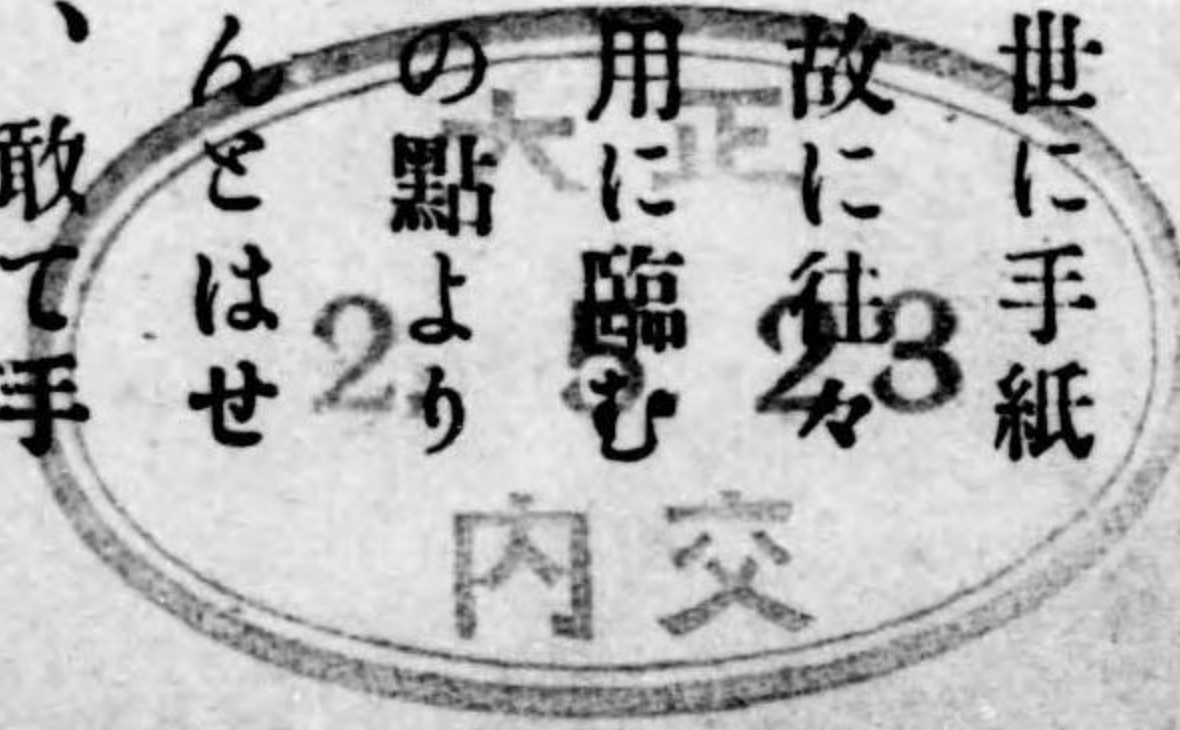 世に手紙
故に往々
用に臨む
の點より
んとはせ
、敢て手
大正
2. 5. 23
内交